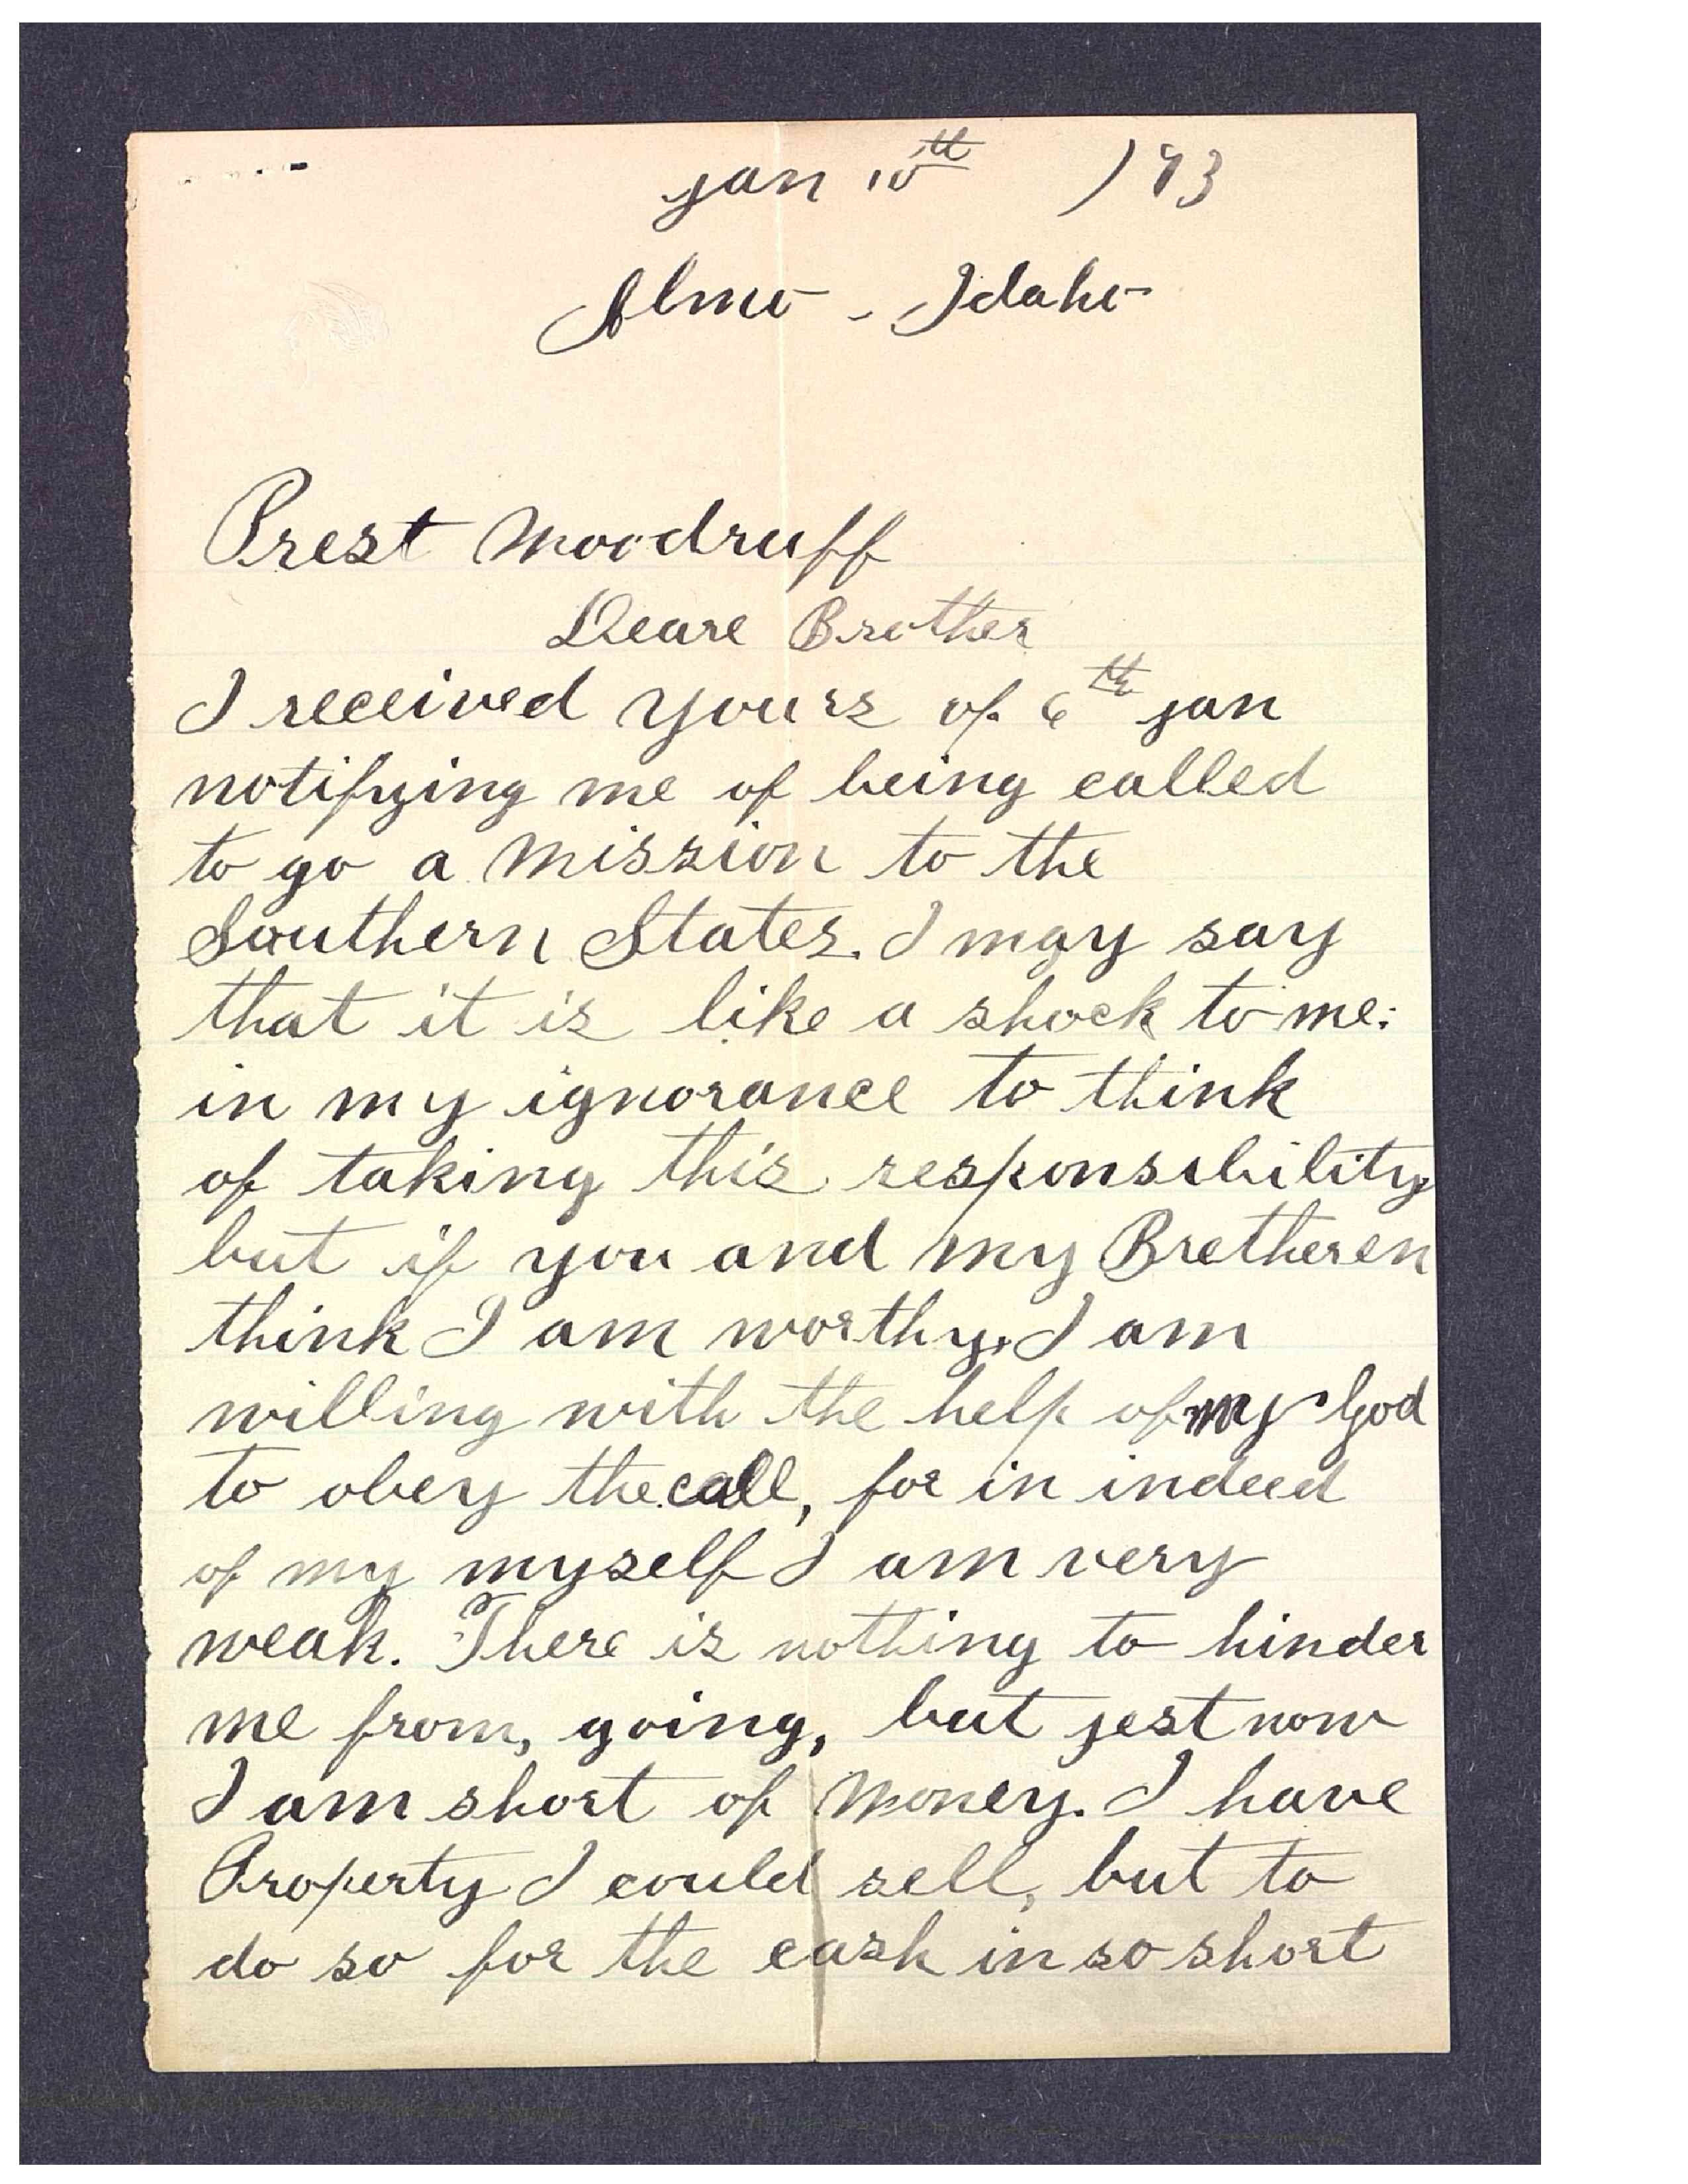 Jan 10th /93
Almo - Idaho
Prest Woodruff
Deare Brother
I received yours of 6th jan
notifying me of being called
to go a Mission to the
Southern States. I may say
that it is like a shock to me:
in my ignorance to think
of taking this responsibility
but if you and my Bretheren
think I am worthy. I am
willing with the help of my God
to obey the call, for in indeed
of my myself I am very
weak. There is nothing to hinder
me from, going, but jest now
I am short of Money. I have
Property I could sell, but to
do so for the cash in so short